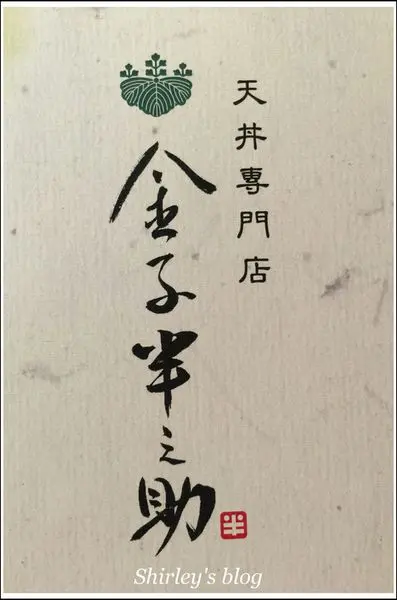 天丼専門店
金子半之助
半
Shirley's blog